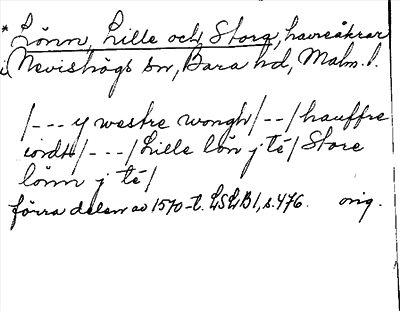 * Lönn, Lille och Stora, havreåkrar
i Nevishögs sn, Bara hd, Malm. l.
/--- y westre wongh/--/hauffre
iordh/---/Lille lön j té/Store
lönn j té/
förra delen av 1570-t. LSLB1, s. 476. orig.